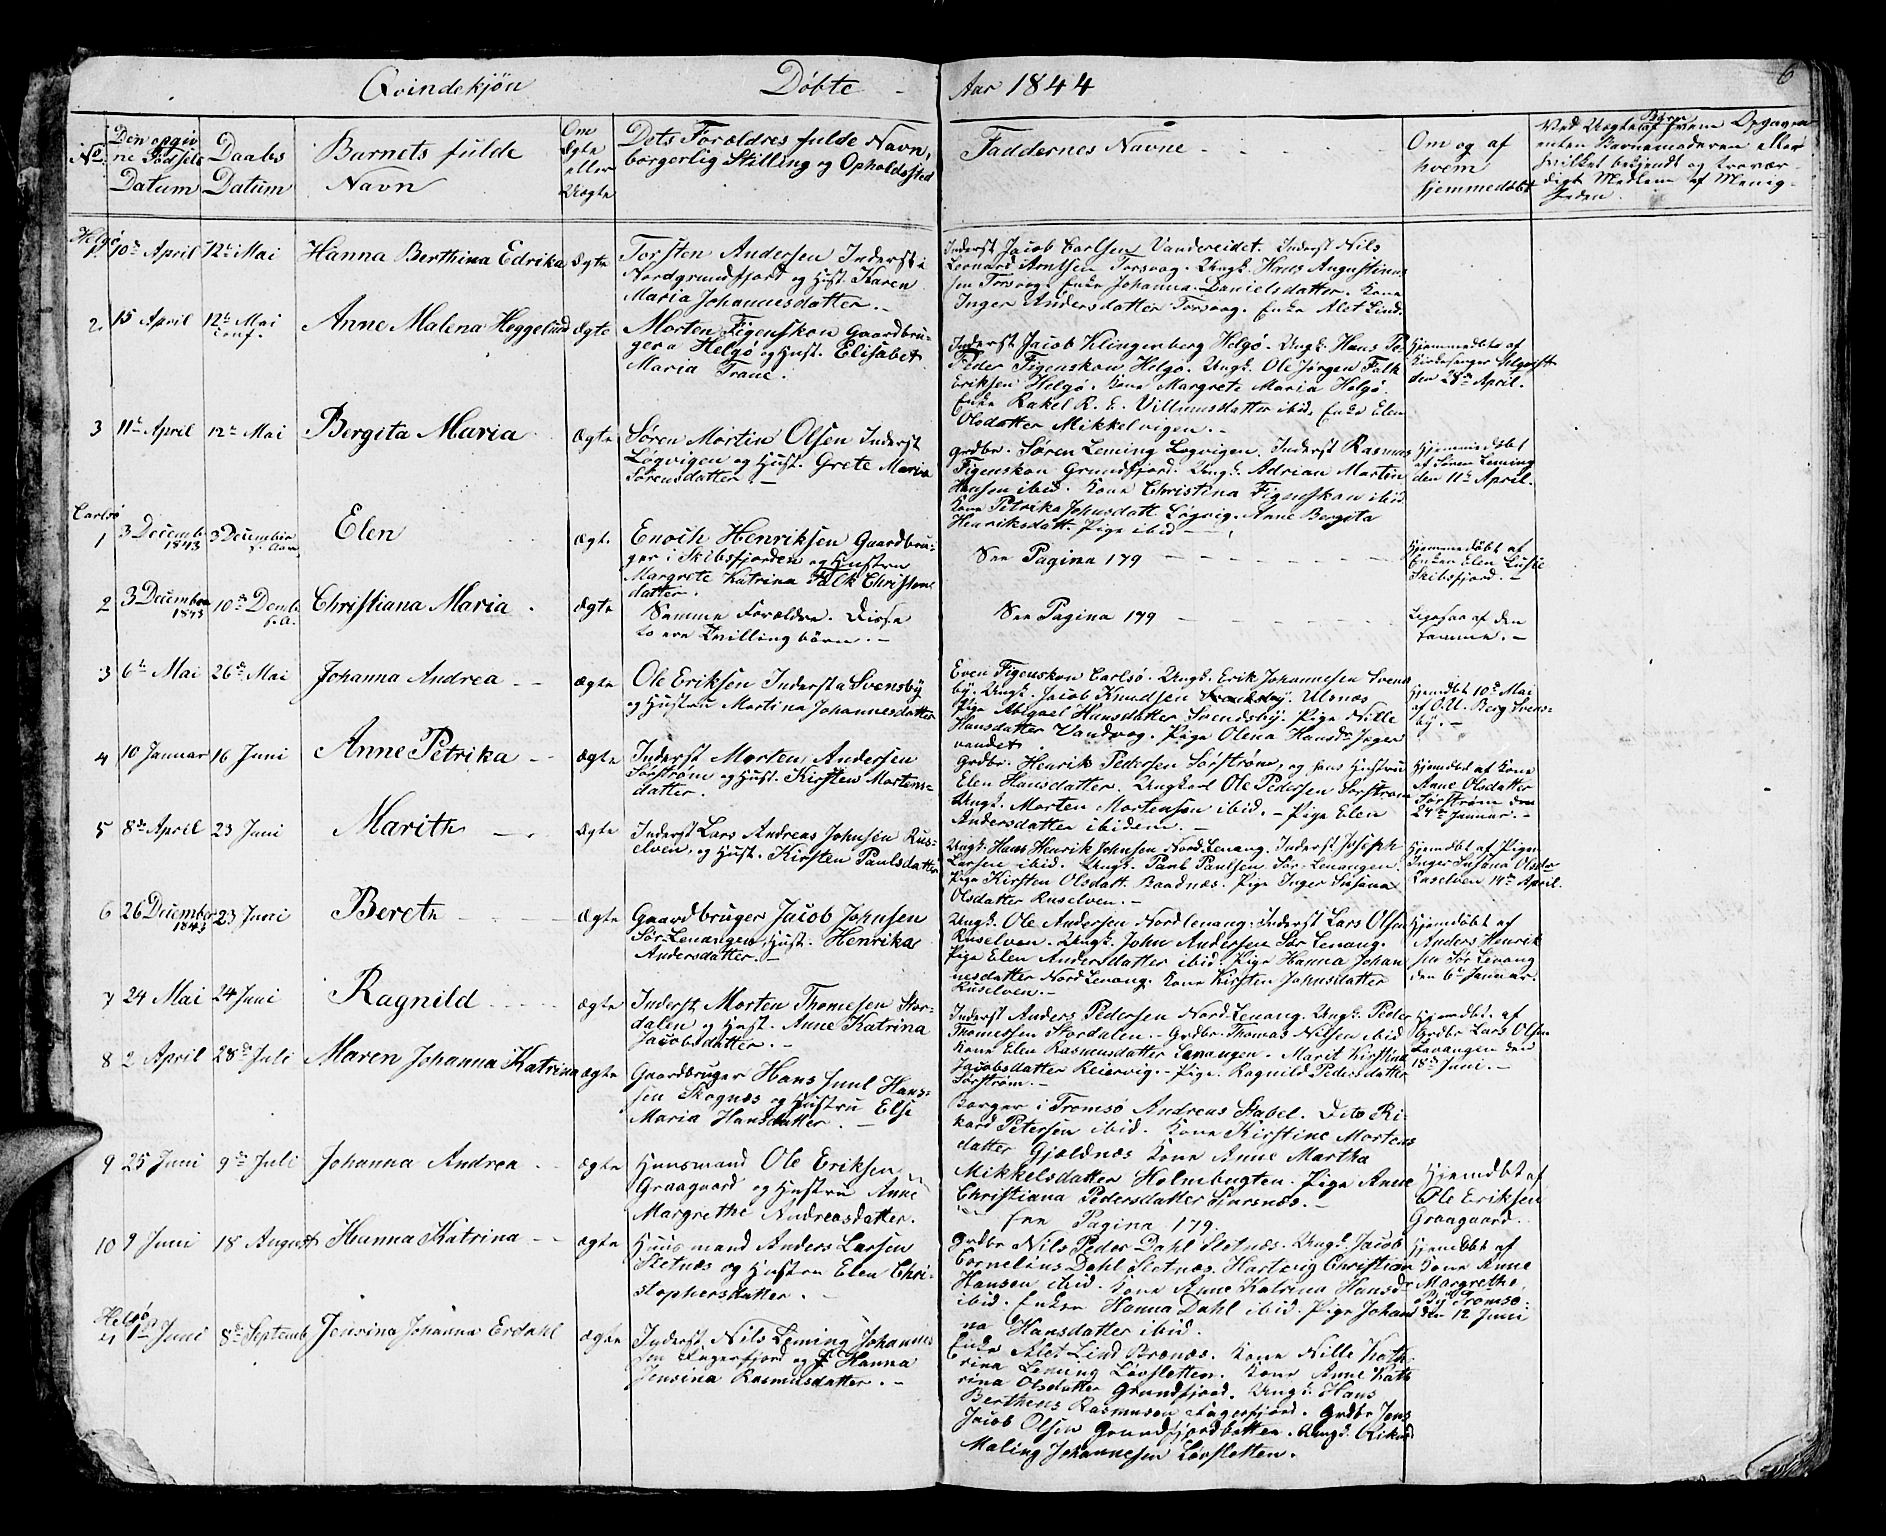 Qvindekjøn Døbte - Aar 1844 6
No.
Den opgiv
ne Fødsels
Datum
Daabs
Datum
Barnets fulde
Navn
Om
Ægte
eller
Uægte
Dets Forældres fulde Navn,
borgerlig Stilling og Opholdssted
Faddernes Navne
Om og af
hvem
hjemmedøbt
Ved Uægte Børn af hvem Opgaven
enten Barnemoderen eller
hvilket bekjendt og trovær-
digt Medlem af Menig-
heden.
Helgø
1. 10de April 12te Mai Hanna Berthina Edrika ægte
Torsten Andersen Inderst i
Nordgrundfjord og Hust. Karen
Maria Johannesdatter.
Inderst Jacob Carlsen Vandereidet. Inderst Nils
Leonard Arntsen Torsvog. Ungk. Hans Augustinus
sen Torsvog. Enke Johanna Danielsdatter. Kone
Inger Andersdatter Torsvog. Enke Alet Lind.
2. 15 April 12te Mai
conf.
Anne Malena Heggelund ægte
Morten Figenskou Gaardbru-
ger a Helgø og Hust. Elisabet
Maria Trane.
Inderst Jacob Klingenberg Helgø. Ungk. Hans Pe-
Peder Figenskou Helgø. Ungk. Ole Jørgen Falk
Eriksen Helgø. Kone Margrete Maria Helgø
Enke Rakel R. E. Villumsdatter ibid. Enke Elen
Olsdatter Mikkelvigen.
Hjemmedøbt af
Kirkesanger
den 28de April.
3 11te April 12te Mai Bergita Maria ægte
Søren Mortin Olsen Inderst
Løgvigen og Hust. Grete Maria
Sørensdatter
Grdbr. Søren Leming Løgvigen. Inderst Rasmus
Figenskou Grundfjord. Ungk. Adrian Martin
Hansen ibid. Kone Christina Figenskou ibid
Kone Petrika Johnsdatt. Løgvig. Anne Bergita
Henriksdatt. Pige ibid
Hjemmedøbt
af Søren Leming
den 11te April.
Carlsø
1 3 Decemb.
1843
3 Decembr
s. Aar
Elen ægte
Enoch Henriksen Gaardbru-
ger i Skibsfjorden og Hustru
Margrete Katrina Falk Christens
datter.
See Pagina 179
Hjemmedøbt af
Enken Elen Lusie
Skibsfjord.
2 3 Decembr
1843
10de Decmb.
s.A.
Christiana Maria ægte
Samme Forældre. Disse
to ere Tvillingbørn.
See Pagina 179
Ligesaa af den
samme.
3 6te Mai 26de Mai Johanna Andrea ægte
Ole Eriksen Inderst a Svensby
og Hustru Martina Johannesdatter
Even Figenskou Carlsø. Ungk. Erik Johannesen Svens
by. Ungk. Jacob Knudsen Ulsnæs
Pige Abigael Hansdatter Svendsby. Pige Nille
Hansdatter Vandvog. Pige Olena Hansdr Jæger
vandet.
Hjemdbt 10de Mai
af O.U. Berg Svens-
by.
4 10 Januar 16 Juni Anne Petrika ægte
Inderst Morten Andersen
Sørstrøm og Hust. Kirsten Mortens-
datter.
Grdbr. Henrik Pedersen Sørstrøm, og hans Hustru
Elen Hansdatter. Ungkarl Ole Pedersen Sørstrøm
Ungk. Morten Mortensen ibid. - Pige Elen
Andersdatter ibidem.
Hjemdbt af Kone
Anne Olsdatter
Sørstrøm den
24de Januar.
5 8de April 23 Juni Marith ægte
Inderst Lars Andreas Johnsen Rus-
elven, og Hust. Kirsten Paulsdatter
Ungk. Hans Henrik Johnsen Nord Lenang. Inderst Joseph
Larsen ibid. Ungk. Paul Paulsen Sør-Lenangen.
Pige Kirsten Olsdatt. Baadnæs. Pige Inger Susana
Olsdatter Ruselven.
Hjemdbt af Pigen
Inger Susana Olsdr
Ruselven 14de April.
6 26 December
1843
23 Juni Berete ægte
Gaardbruger Jacob Johnsen
Sør-Lenangen, Hust. Henrika
Andersdatter.
Ungk. Ole Andersen Nordlenang. Inderst Lars Olsen
Ruselven. Ungk. John Andersen Sør Lenang.
Pige Elen Andersdatter ibid. Pige Hanna Johan
nesdatter Nord Lenang. Kone Kirsten Johnsdatter
Ruselven.
Hjemdøbt af
Anders Henrik
sen Sør Lenang
den 6te Januar.
7 24 Mai 24 Juni Ragnild ægte
Inderst Morten Thomesen Stor-
dalen og Hust. Anne Katrina
Jacobsdatter.
Inderst Anders Pedersen Nord-Lenang. Ungk. Peder
Thomessen Stordalen. Grdbr. Thomas Nilsen ibid
Kone Elen Rasmusdatter Lenangen. Marit Kirstina
Jacobsdatter Reiervig. Pige Ragnild Pedersdatter
Sørstrøm.
Hjemdbt. af
Grdbr Lars Olsen
Lavangen den
18de Juni.
8 2 April 28de Juli Maren Johanna Katrina ægte
Gaardbruger Hans Juul Hans-
sen Skognæs og Hustru Else
Maria Hansdatter.
Borger i Tromsø Andreas Stabel. Dito Ri-
kard Petersen ibid. Kone Kirstine Mortens
datter Gjøldnæs Kone Anne Martha
Mikkelsdatter Holmbugten. Pige Anne
Christiana Pedersdatter Finsnæs.
9 25 Juni 9de Juli Johanna Andrea ægte
Huusmand Ole Eriksen
Graagaard og Hustru Anne
Margrethe Andreasdatter.
see Pagina 179.
Hjemdbt af
Ole Eriksen
Graagaard.
10 9 Juni 18 August Hanna Katrina ægte
Huusmand Anders Larsen
Sletnæs og Hustru Elen Chri-
stophersdatter.
Grdbr Nils Peder Dahl Sletnæs. Ungk. Jacob
Cornelius Dahl Sletnæs. Hartvig Christian
Hansen ibid. Kone Anne Katrina Hansdr
ibid. Enken Hanna Dahl ibid. Pige Johan
na Hansdatter ibid.
Hjemdbt af
Kone Anne
Margrethe
Tromsø
den 12 Juni
Helgø
4 1te Juni 8de Septemb Jensina Johanna Erdahl ægte
Inderst Nils Leming Johannes
sen Fagerfjord og H. Hanna
Jensina Rasmusdatter.
Enke Alet Lind Brænæs. Kone Nille Kath-
rina Leming Løvsletten. Kone Anne Kath
rina Olsdatter Grundfjord. Ungk. Hans
Berthens Rasmusen Fagerfjord. Grdbr Jens
Jacob Olsen Grundfjordbotten. Ungk. Rikard
Maling Johannesen Løvsletten.